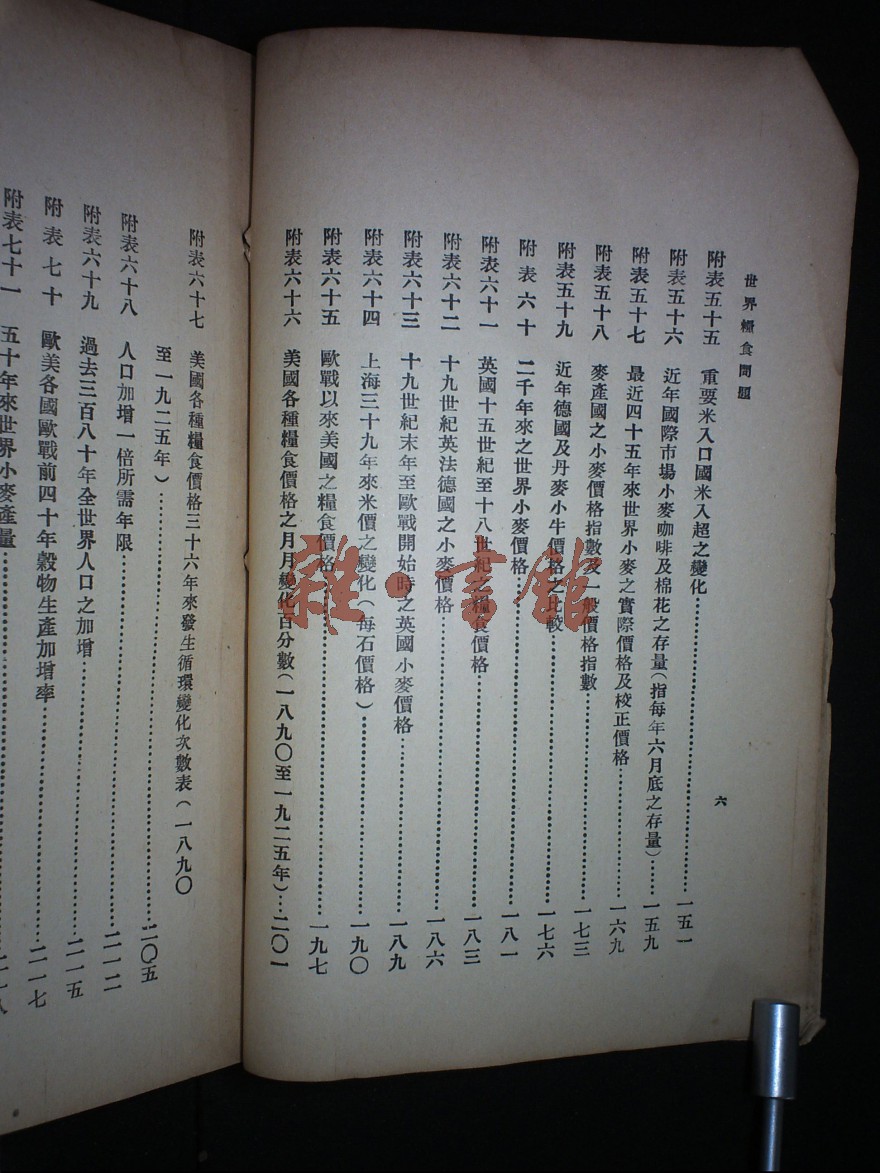 世界糧食問題
六
附表五十五 重要米入口國米入超之變化……一五一
附表五十六 近年國際市場小麥咖啡及棉花之存量(指每年六月底之存量)……一五九
附表五十七 最近四十五年來世界小麥之實際價格及校正價格……一六九
附表五十八 麥產國之小麥價格指數及一般價格指數……一七三
附表五十九 近年德國及丹麥小牛價格之比較……一七六
附表六十 二千年來之世界小麥價格……一八一
附表六十一 英國十五世紀至十八世紀之糧食價格……一八三
附表六十二 十九世紀英法德國之小麥價格……一八六
附表六十三 十九世紀末年至歐戰開始時之英國小麥價格……一八九
附表六十四 上海三十九年來米價之變化(每石價格)……一九〇
附表六十五 歐戰以來美國之糧食價格……一九七
附表六十六 美國各種糧食價格之月月變化百分數(一八九〇至一九二五年)……二〇一
附表六十七 美國各種糧食價格三十六年來發生循環變化次數表(一八九〇
至一九二五年)……二〇五
附表六十八 人口加增一倍所需年限……二一二
附表六十九 過去三百八十年全世界人口之加增……二一五
附表七十 歐美各國歐戰前四十年穀物生產加增率……二一七
附表七十一 五十年來世界小麥產量……
雜·書館